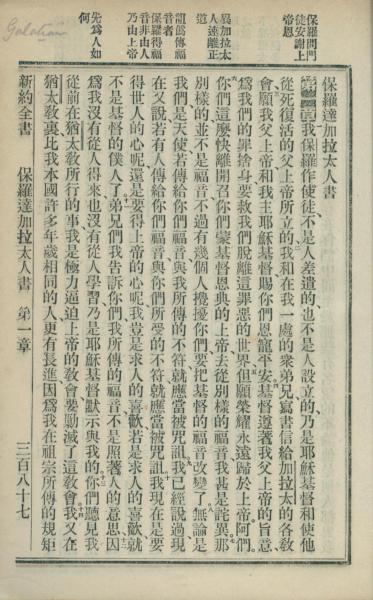 Galatian
保羅問門
徒安謝上
帝恩
加拉太
人速離正
道
爲傳福
音者
保羅得福
音非由人
乃由上帝
先爲人如
何
保羅達加拉太人書
我保羅作使徒、不是人差遣的、也不是人設立的、乃是耶穌基督和使他
從死復活的父上帝所立的、我和在我一處的衆弟兄寫書信給加拉太的各教
會願我父上帝和我主耶穌基督賜你們恩寵平安基督遵著我父上帝的旨意
爲我們的罪捨身要救我們脫離這罪惡的世界但願榮耀永遠歸於上帝阿們
你們這麽快離開召你們蒙基督恩典的上帝去從別樣的福音我甚是詫異那
別樣的並不是福音不過有幾個人攪擾你們要把基督的福音改變了無論是
我們是天使若傳給你們福音與我所傳的不符就應當被咒詛我已經說過現
在又說若有人傳給你們福音與你們所受的不符就應當被咒詛我現在是要
得世人的心呢還是要得上帝的心呢我豈是求人的喜歡若是求人的喜歡就
不是基督的僕人了弟兄們我告訴你們我所傳的福音不是照著人的意思因
爲我沒有從人得來也沒有從人學習乃是耶穌基督默示與我的你們聽見我
從前在猶太教所行的事我是極力逼迫上帝的教會要勦滅了這教會我又在
猶太教裏比我本國許多年歲相同的人更有長進因爲我在祖宗所傳的規矩
新約全書 保羅達加拉太人書 第一章 三百八十七